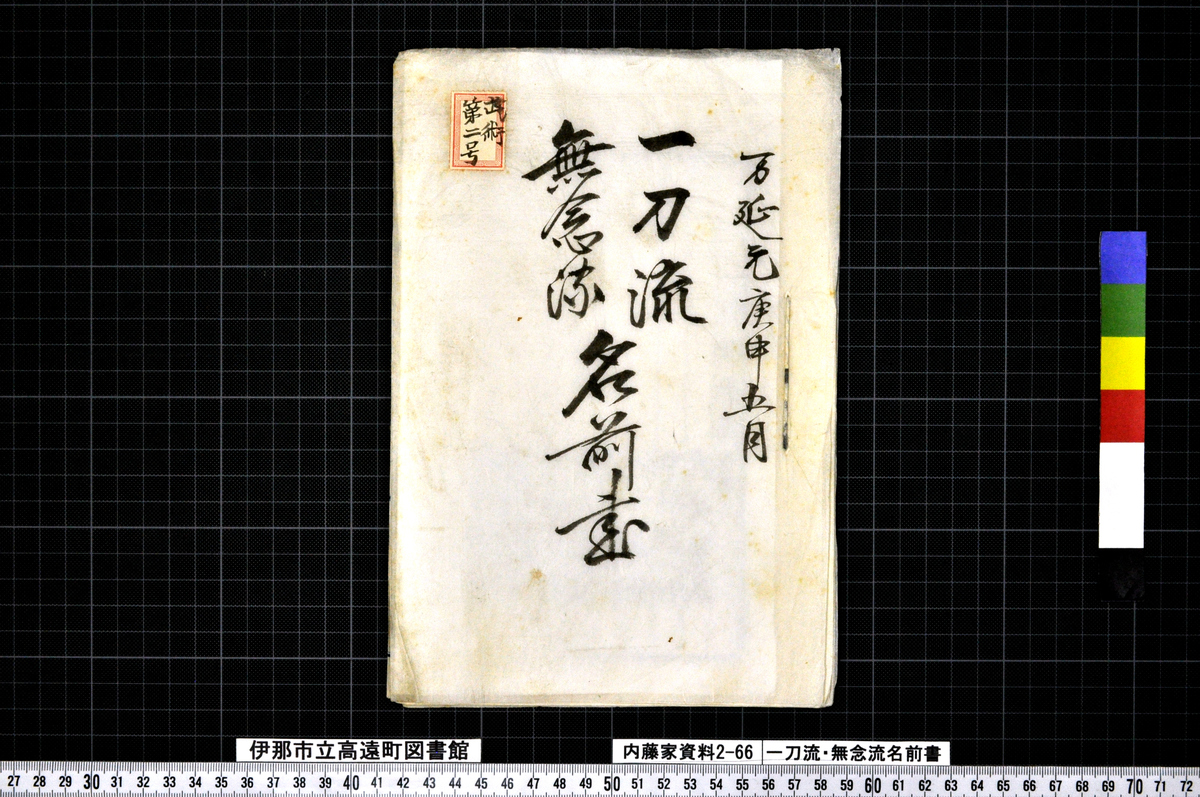 万延元庚申五月
一刀流
無念流
名前書
武術
第二号
伊那市立高遠町図書館
内藤家資料2-66
一刀流・無念流名前書
27 28 29 30 31 32 33 34 35 36 37 38 39 40 41 42 43 44 45 46 47 48 49 50 51 52 53 54 55 56 57 58 59 60 61 62 63 64 65 66 67 68 69 70 71 72